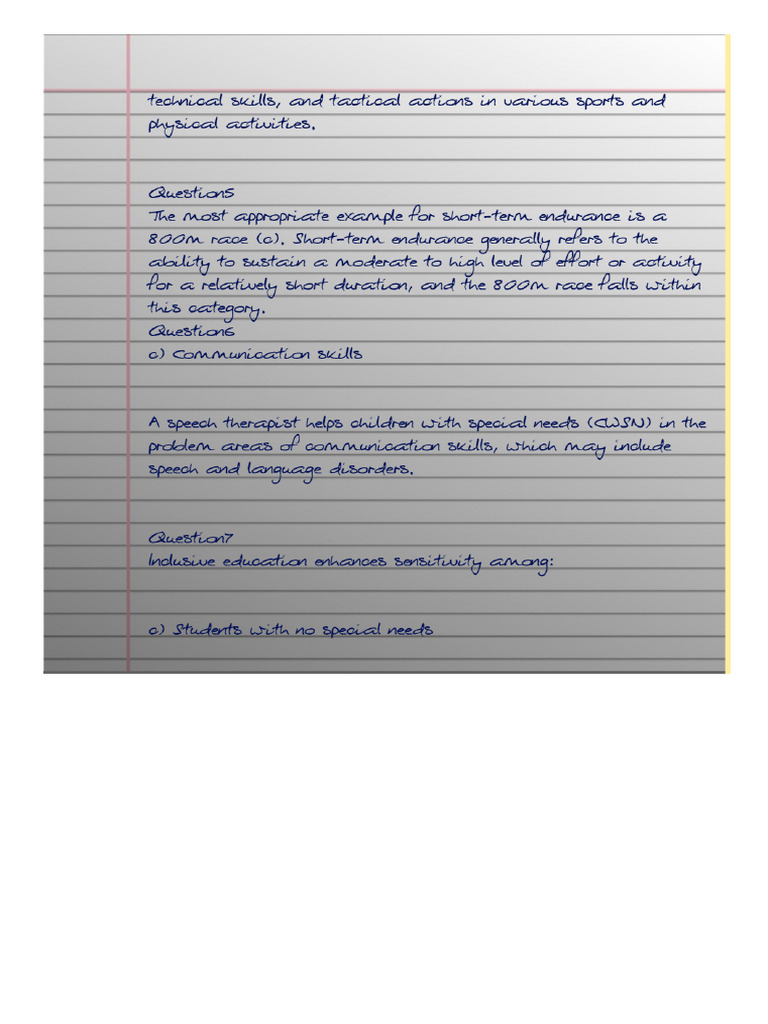 technical skills, and tactical actions in various sports and
physical activities.
Question5
The most appropriate example for short-term endurance is a
800m race (c). Short-term endurance generally refers to the
ability to sustain a moderate to high level of effort or activity
for a relatively short duration, and the 800m race falls within
this category.
Question6
c) Communication skills
A speech therapist helps children with special needs (CWSN) in the
problem areas of communication skills, which may include
speech and language disorders.
Question7
Inclusive education enhances sensitivity among:
c) Students with no special needs